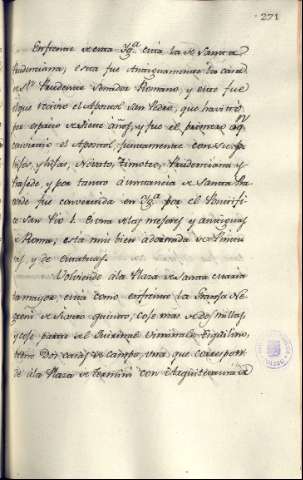 271
Enfrente de esta Yg.ª está la de Santa
Pudenciana, esta fue Antiguamente la casa
de Sn. Prudente Senador Romano, y este fue
el que recivio el Apostol San Pedro, que havito
por espacio de siete años, y fue el primero aqn.
convirtio el Apostol, juntamente con sus
hijos, y hijas, Novato, Timoteo, Pudenciana y
Praxede, y por tanto a instancia de Santa
fue convertida en Yg.ª por el Pontifi
San Pio I. Es una de las mejores y antiguas
de Roma, está mui bien adornada de Pintu
ras, y de estatuas.
Volviendo ala Plaza de Santa Maria
la mayor, está como enfrente la Granja
de Sixto quinto, coje mas de dos millas,
y coje parte de Quirinal Viminal y Esquilino,
tiene Dos casas de campo, una que correspon
de ala Plaza de Termini con Arquitectura de